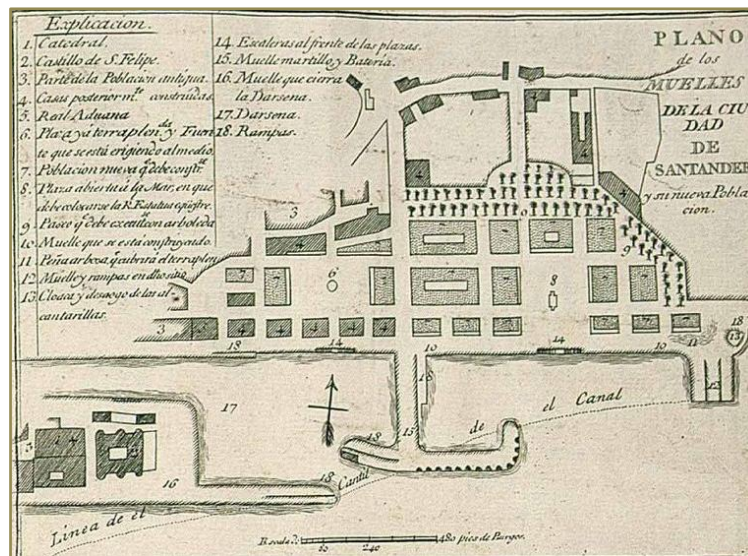 Explicacion.
1. Catedral.
2. Castillo de S. Felipe.
3. Parte de la Poblacion antigua.
4. Casas posterior mte. construidas.
5. Real Aduana
6. Plaza yá terraplenda. y Fuen
te que se está erigiendo al medio.
7. Poblacion nueva q. debe constr.
8. Plaza abierta á la Mar, en que
debe colocarse la R. Estatua equestre.
9. Paseo q. debe con arboleda
10. Muelle que se esta construyendo.
11. Peña q. cubrirá el terraplen
12. Muelle y rampas en dho sitio
13. Cloaca y desaogo de las al-
cantarillas.
14. Escaleras al frente de las plazas.
15. Muelle martillo y Bateria.
16. Muelle que cierra
la Darsena.
17. Darsena.
18. Rampas.
PLANO
de los
MUELLES
DE LA CIU
DAD
DE
SANTANDER
y su nueva Pobla
cion.
3 4 4 4 4
9 9
7 7 7 7 7 7
6 8
3 4 4 4 4 4 7 7 7 7 7 7
18 14 10 10 14 10 11 18
13
12
17 18
15 18
de el Canal
3 1 4 2
16 18 Cantil
Linea de el
Escala de 480 pies de Burgos.
60 240